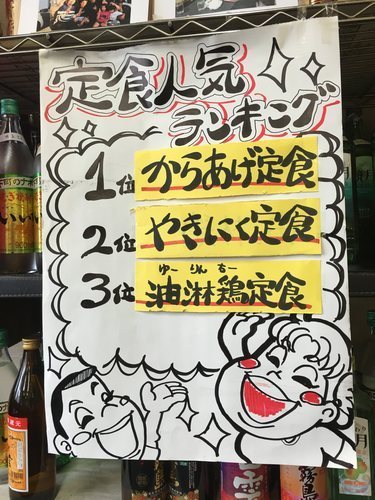 定食人気
ランキング
1位 からあげ定食
2位 やきにく定食
ゆー りん ちー
3位 油淋鶏定食
いい
霧島